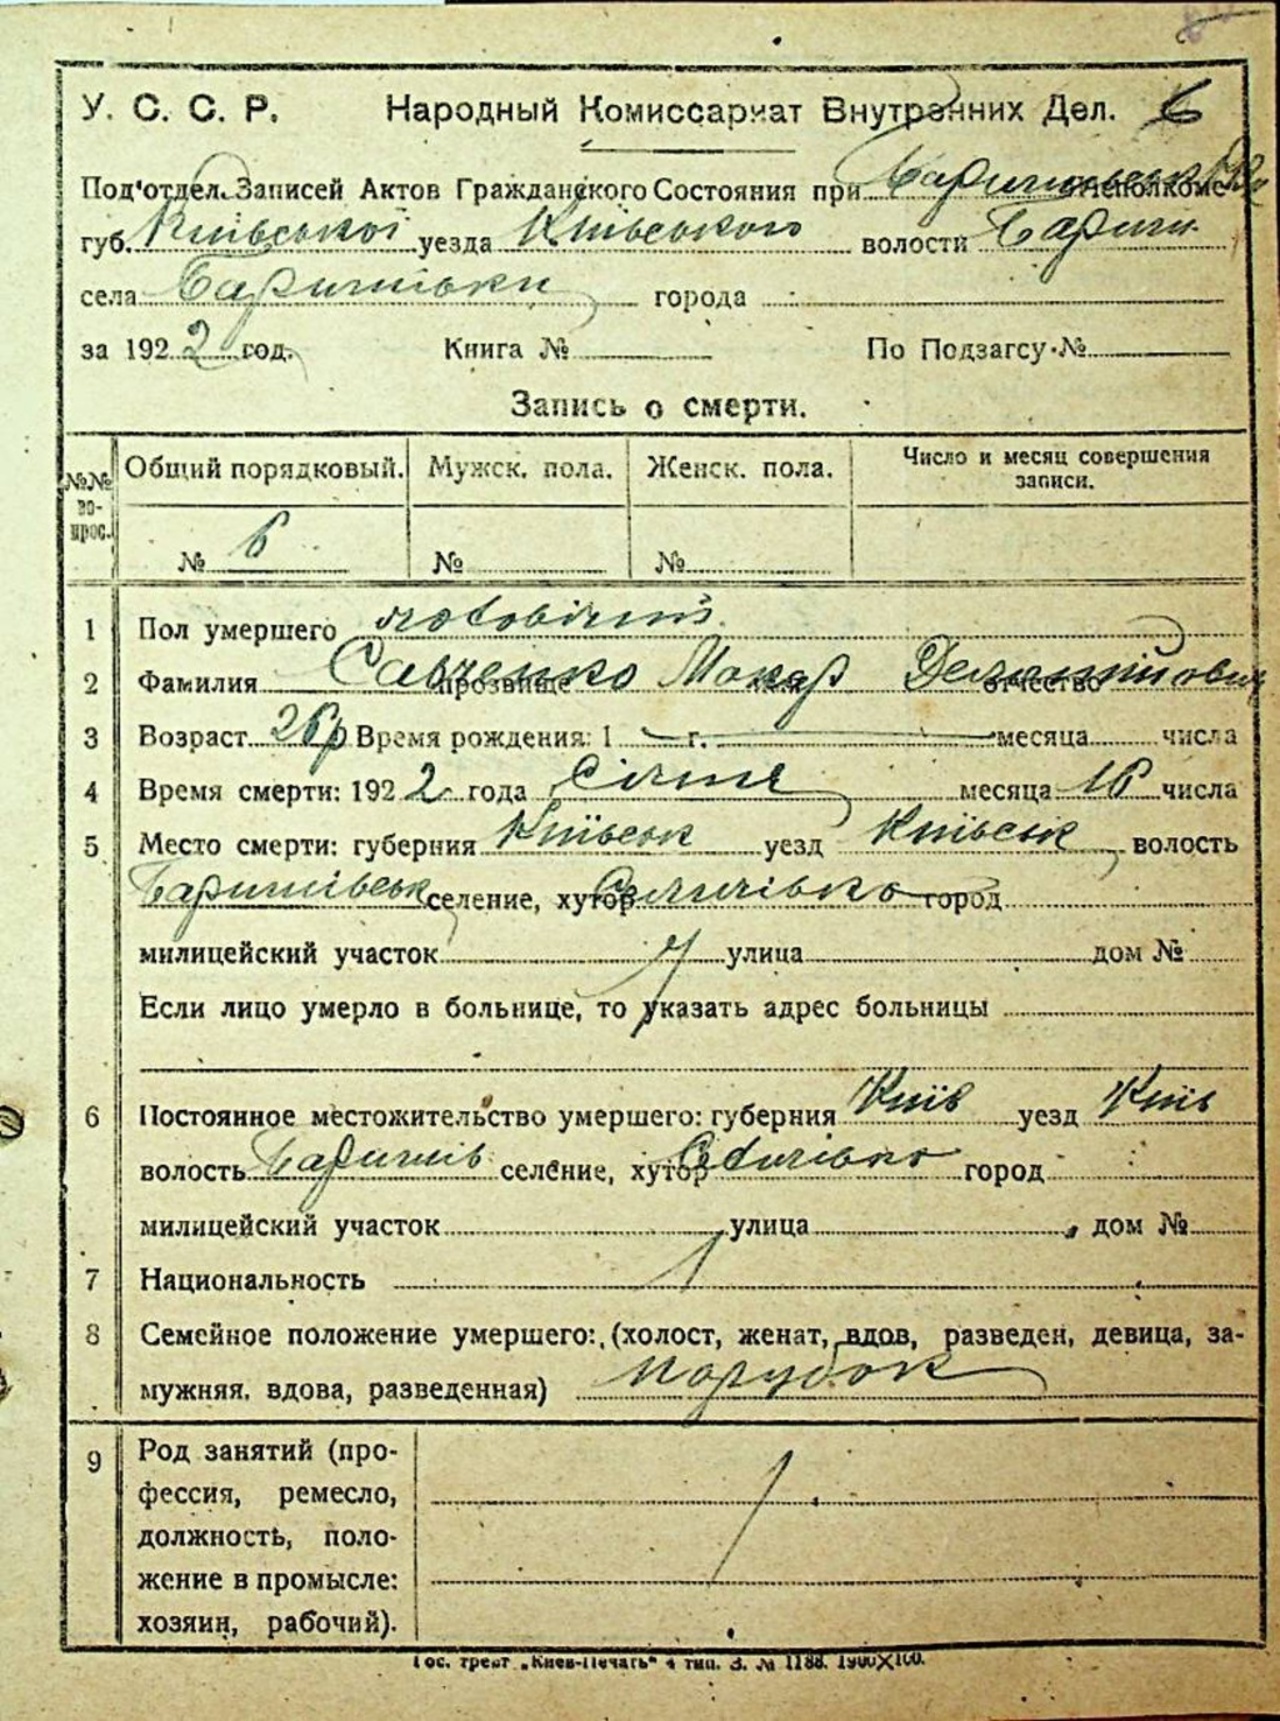 У. С. С. Р. Народный Комиссариат Внутренних Дел. 6
Под'отдел Записей Актов Гражданского Состояния при исполкоме
губ. Київської уезда Київського волости Бариш
села Баришівки города
за 1922 год. Книга № По Подзагсу №
Запись о смерти.
№№ вопрос. Общий порядковый. Мужск. пола. Женск. пола. Число и месяц совершения записи.
№ 6 № №
1 Пол умершего чоловічий
2 Фамилия Савченко прозвище Макар имя отчество
3 Возраст 26 р Время рождения: 1 г. месяца числа
4 Время смерти: 1922 года Січня месяца 16 числа
5 Место смерти: губерния Київськ уезд Київськ волость
Баришівськ селение, хутор Селичівка город
милицейский участок улица дом №
Если лицо умерло в больнице, то указать адрес больницы
6 Постоянное местожительство умершего: губерния Київ уезд Київ
волость Баришів селение, хутор Селичівка город
милицейский участок улица дом №
7 Национальность
8 Семейное положение умершего: (холост, женат, вдов, разведен, девица, за-
мужняя, вдова, разведенная) парубок
9 Род занятий (про-
фессия, ремесло,
должность, поло-
жение в промысле:
хозяин, рабочий).
Гос. трест „Киев-Печать" 4 тип. З. № 1188. 1900X100.